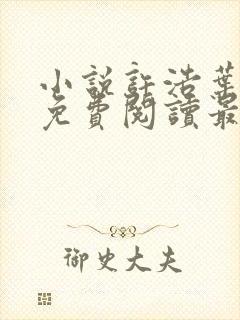 小説許浩葉
免費閱讀最
御史大夫